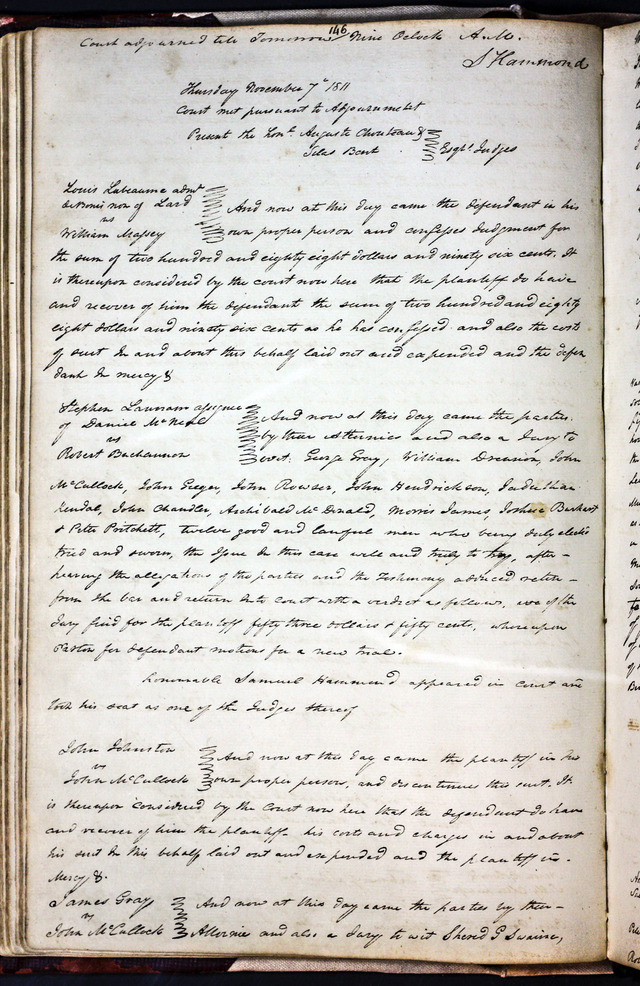 146
Court adjourned till Tomorrow Nine Oclock A.M.
S Hammond
Thursday November 7th 1811
Court met pursuant to Adjournment
Present the Honl. Auguste Chouteau &
Silas Bent Esqrs. Judges
Louis Labeaume admr
debonis non of Lard
vs
William Massey
And now at this day came the defendant in his
own proper person and confesses Judgment for
the sum of two hundred and eighty eight dollars and ninety six cents. It
is thereupon considered by the court now here that the plaintiff do have
and recover of him the defendant the sum of two hundred and eighty
eight dollars and ninety six cents as he has confessed and also the costs
of suit in and about this behalf laid out and expended and the defen
dant In mercy &
Stephen assignee
of Daniel McNeal
vs
Robert Buchannon
And now at this day came the parties
by their Attornies and also a Jury to
wit: George Gray, William Drennon, John
McCullock, John Geiger, John Rowser, John Hendrickson, Judethan
Kendal, John Chandler, Archibald McDonald, Morris James, Joshua Burkhart
& Peter Pritchett, twelve good and lawful men who being duly elected
tried and sworn, the Issue In this case well and truly to try, after
hearing the allegations of the parties and the Testimony adduced retire
from the bar and return into court with a verdict as follows, we of the
Jury find for the plaintiff fifty three dollars & fifty cents, whereupon
for defendant motions for a new trial.
honourable Samuel Hammond appeared in court and
took his seat as one of the Judges thereof
John Johnston
vs
John McCullock
And now at this day came the plaintiff in his
own proper person, and discontinues this suit. It
is thereupon considered by the Court now here that the defendant do have
and recover of him the plaintiff his costs and charges in and about
his suit In this behalf laid out and expended and the plaintiff in
Mercy &.
James Gray
vs
John McCullock
And now at this day came the parties by their
Attornies and also a Jury to wit Shered P Swaine,